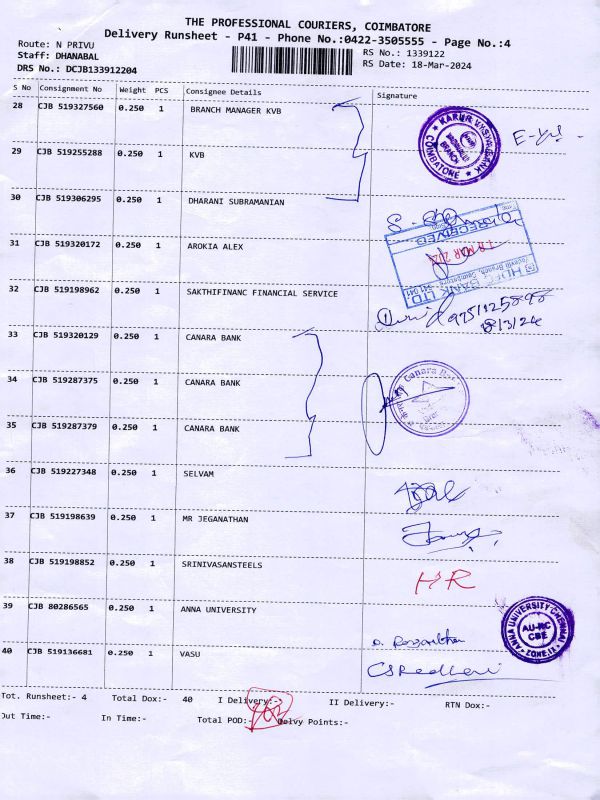 THE PROFESSIONAL COURIERS, COIMBATORE
Delivery Runsheet - P41 - Phone No.:0422-3505555 - Page No.:4
Route: N PRIVU
RS No.: 1339122
Staff: DHANABAL
RS Date: 18-Mar-2024
DRS No.: DCJB133912204
S No Consignment No Weight PCS Consignee Details Signature
28 CJB 519327560 0.250 1 BRANCH MANAGER KVB
KARUR VYSYA BANK
COIMBATORE
BRANCH
29 CJB 519255288 0.250 1 KVB
30 CJB 519306295 0.250 1 DHARANI SUBRAMANIAN
RECEIVED
31 CJB 519320172 0.250 1 AROKIA ALEX
18 MAR 202
HDFC BANK LTD.
32 CJB 519198962 0.250 1 SAKTHIFINANC FINANCIAL SERVICE
18/3/24
33 CJB 519320129 0.250 1 CANARA BANK
34 CJB 519287375 0.250 1 CANARA BANK
Canara
35 CJB 519287379 0.250 1 CANARA BANK
36 CJB 519227348 0.250 1 SELVAM
37 CJB 519198639 0.250 1 MR JEGANATHAN
38 CJB 519198852 0.250 1 SRINIVASANSTEELS
HR
39 CJB 80286565 0.250 1 ANNA UNIVERSITY
ANNA UNIVERSITY CHENNAI
AU-RC
CBE
ZONE.II
40 CJB 519136681 0.250 1 VASU
Tot. Runsheet:- 4 Total Dox:- 40 I Delivery:- II Delivery:- RTN Dox:-
Out Time:- In Time:- Total POD:- Delvy Points:-